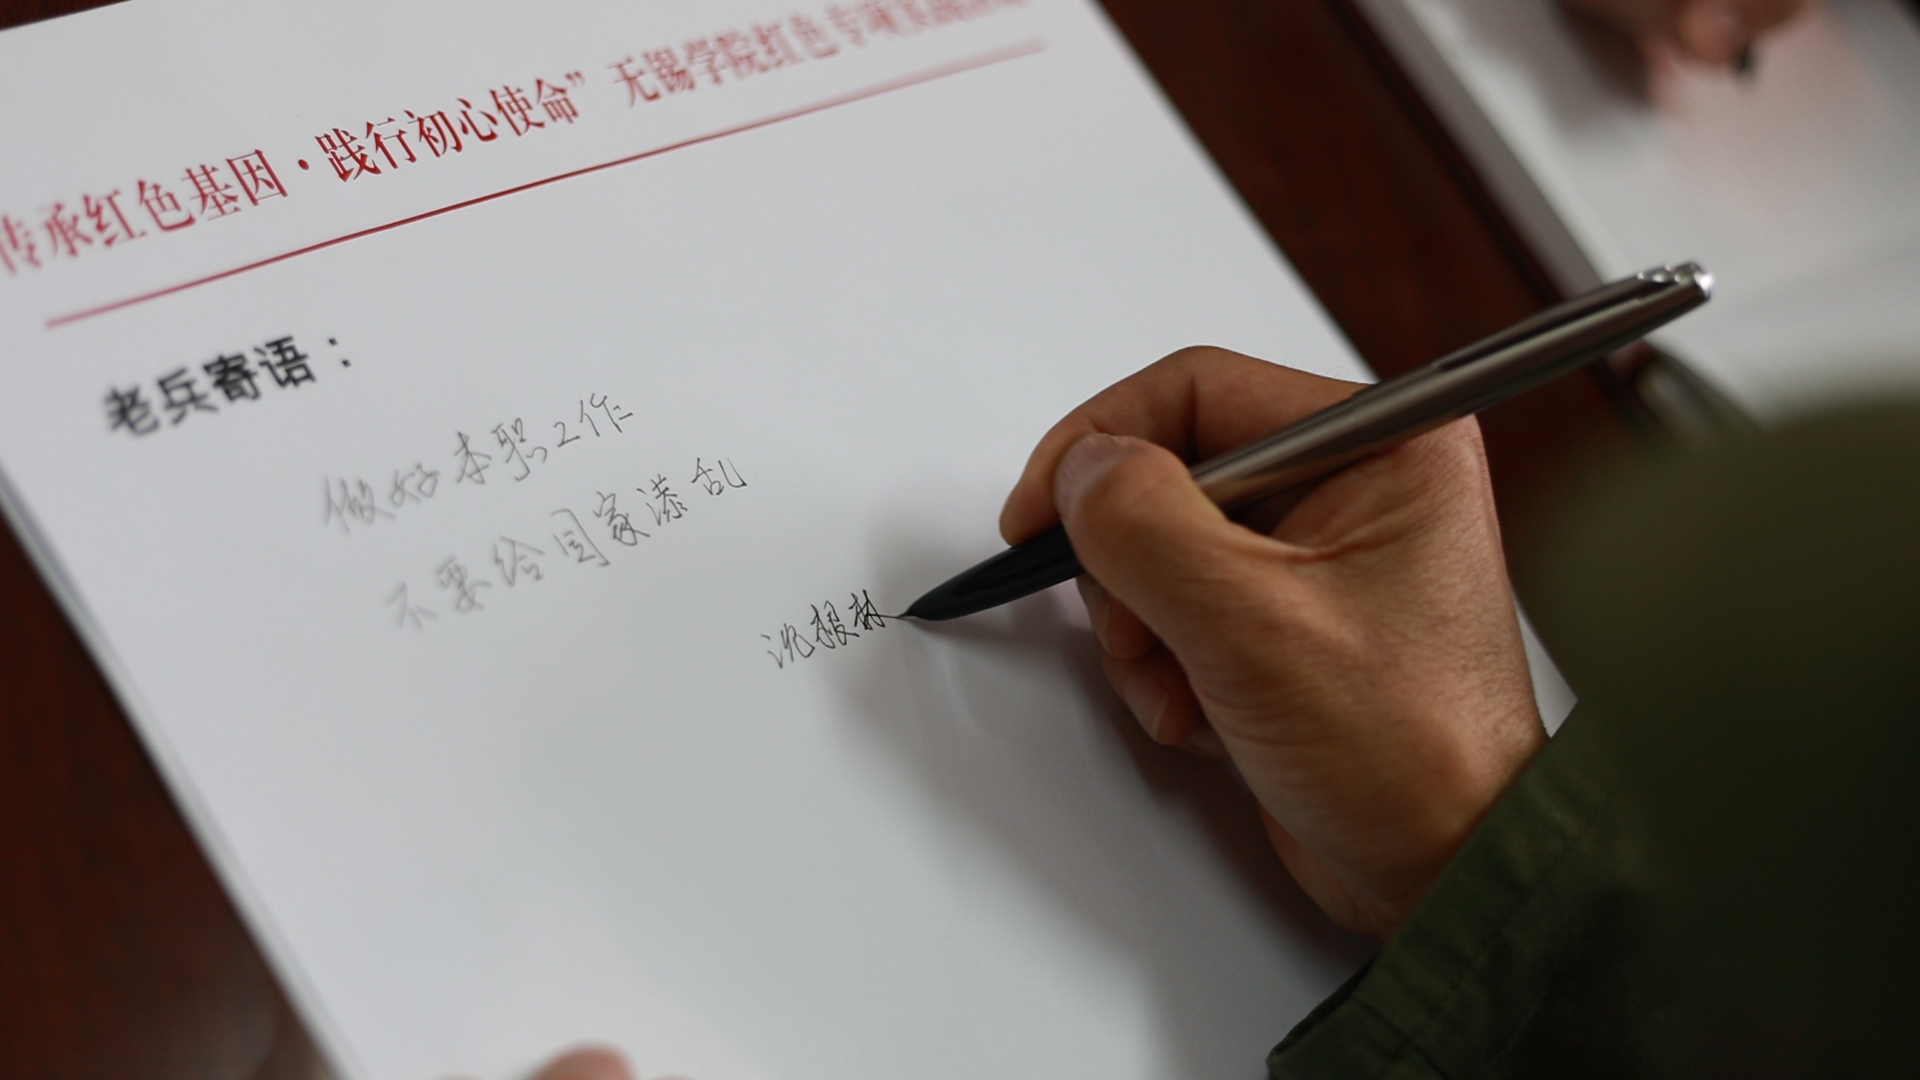 传承红色基因·践行初心使命”无锡学院红色专项实践活动
老兵寄语：
做好本职工作
不要给国家添乱
沈根林